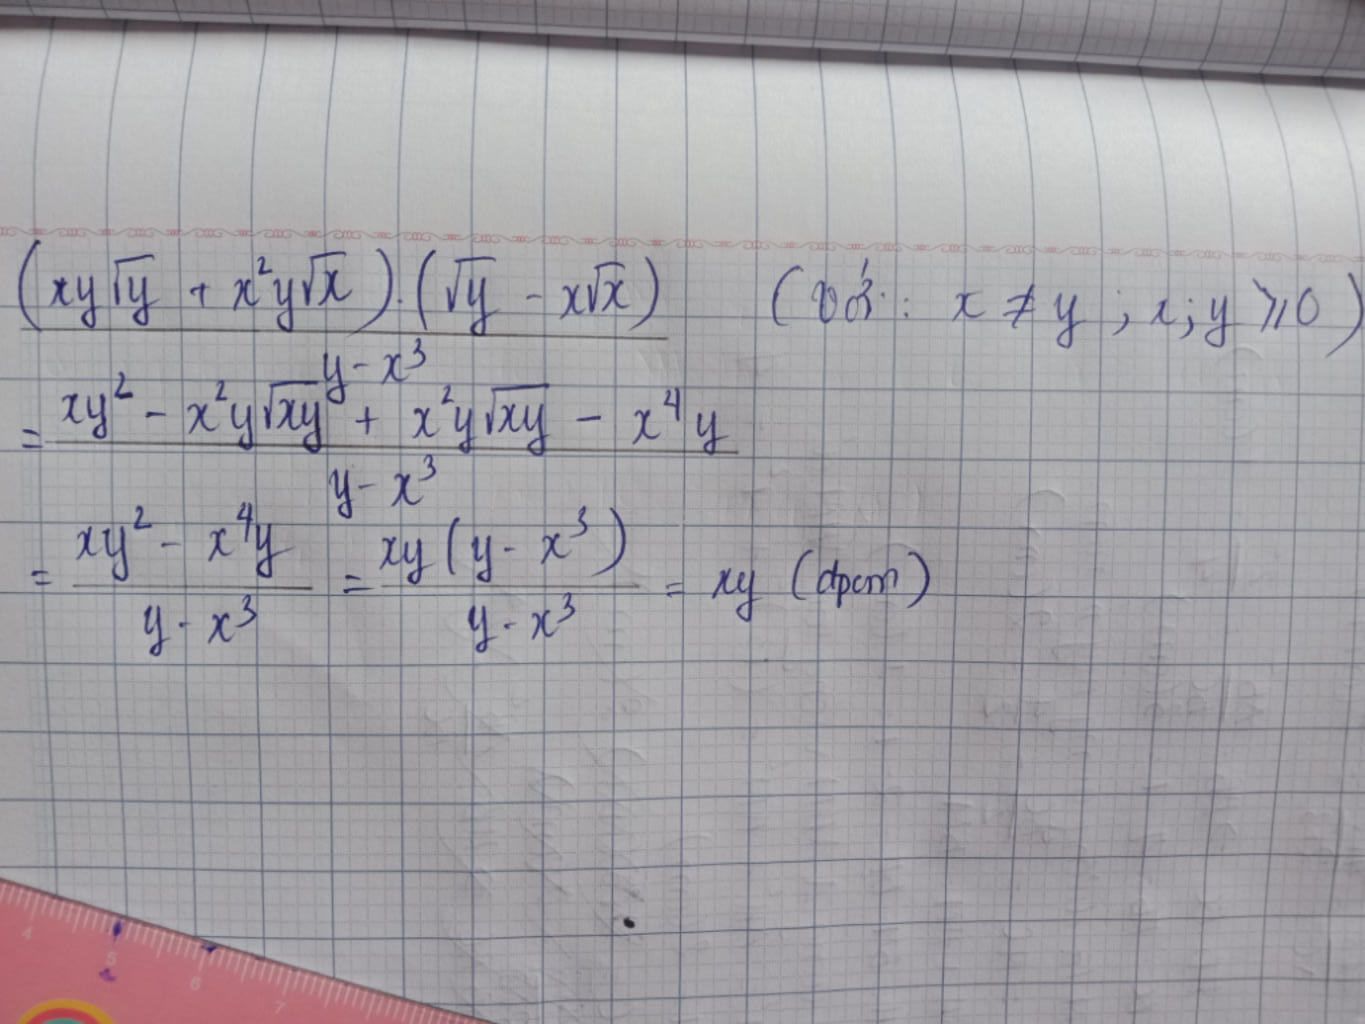 (xy√y + x²y√x).(√y - x√x) / y - x³ (với: x ≠ y ; x; y ⩾ 0)
= xy² - x²y√xy + x²y√xy - x⁴y / y - x³
= xy² - x⁴y / y - x³ = xy(y - x³) / y - x³ = xy (đpcm)
4 5 6 7